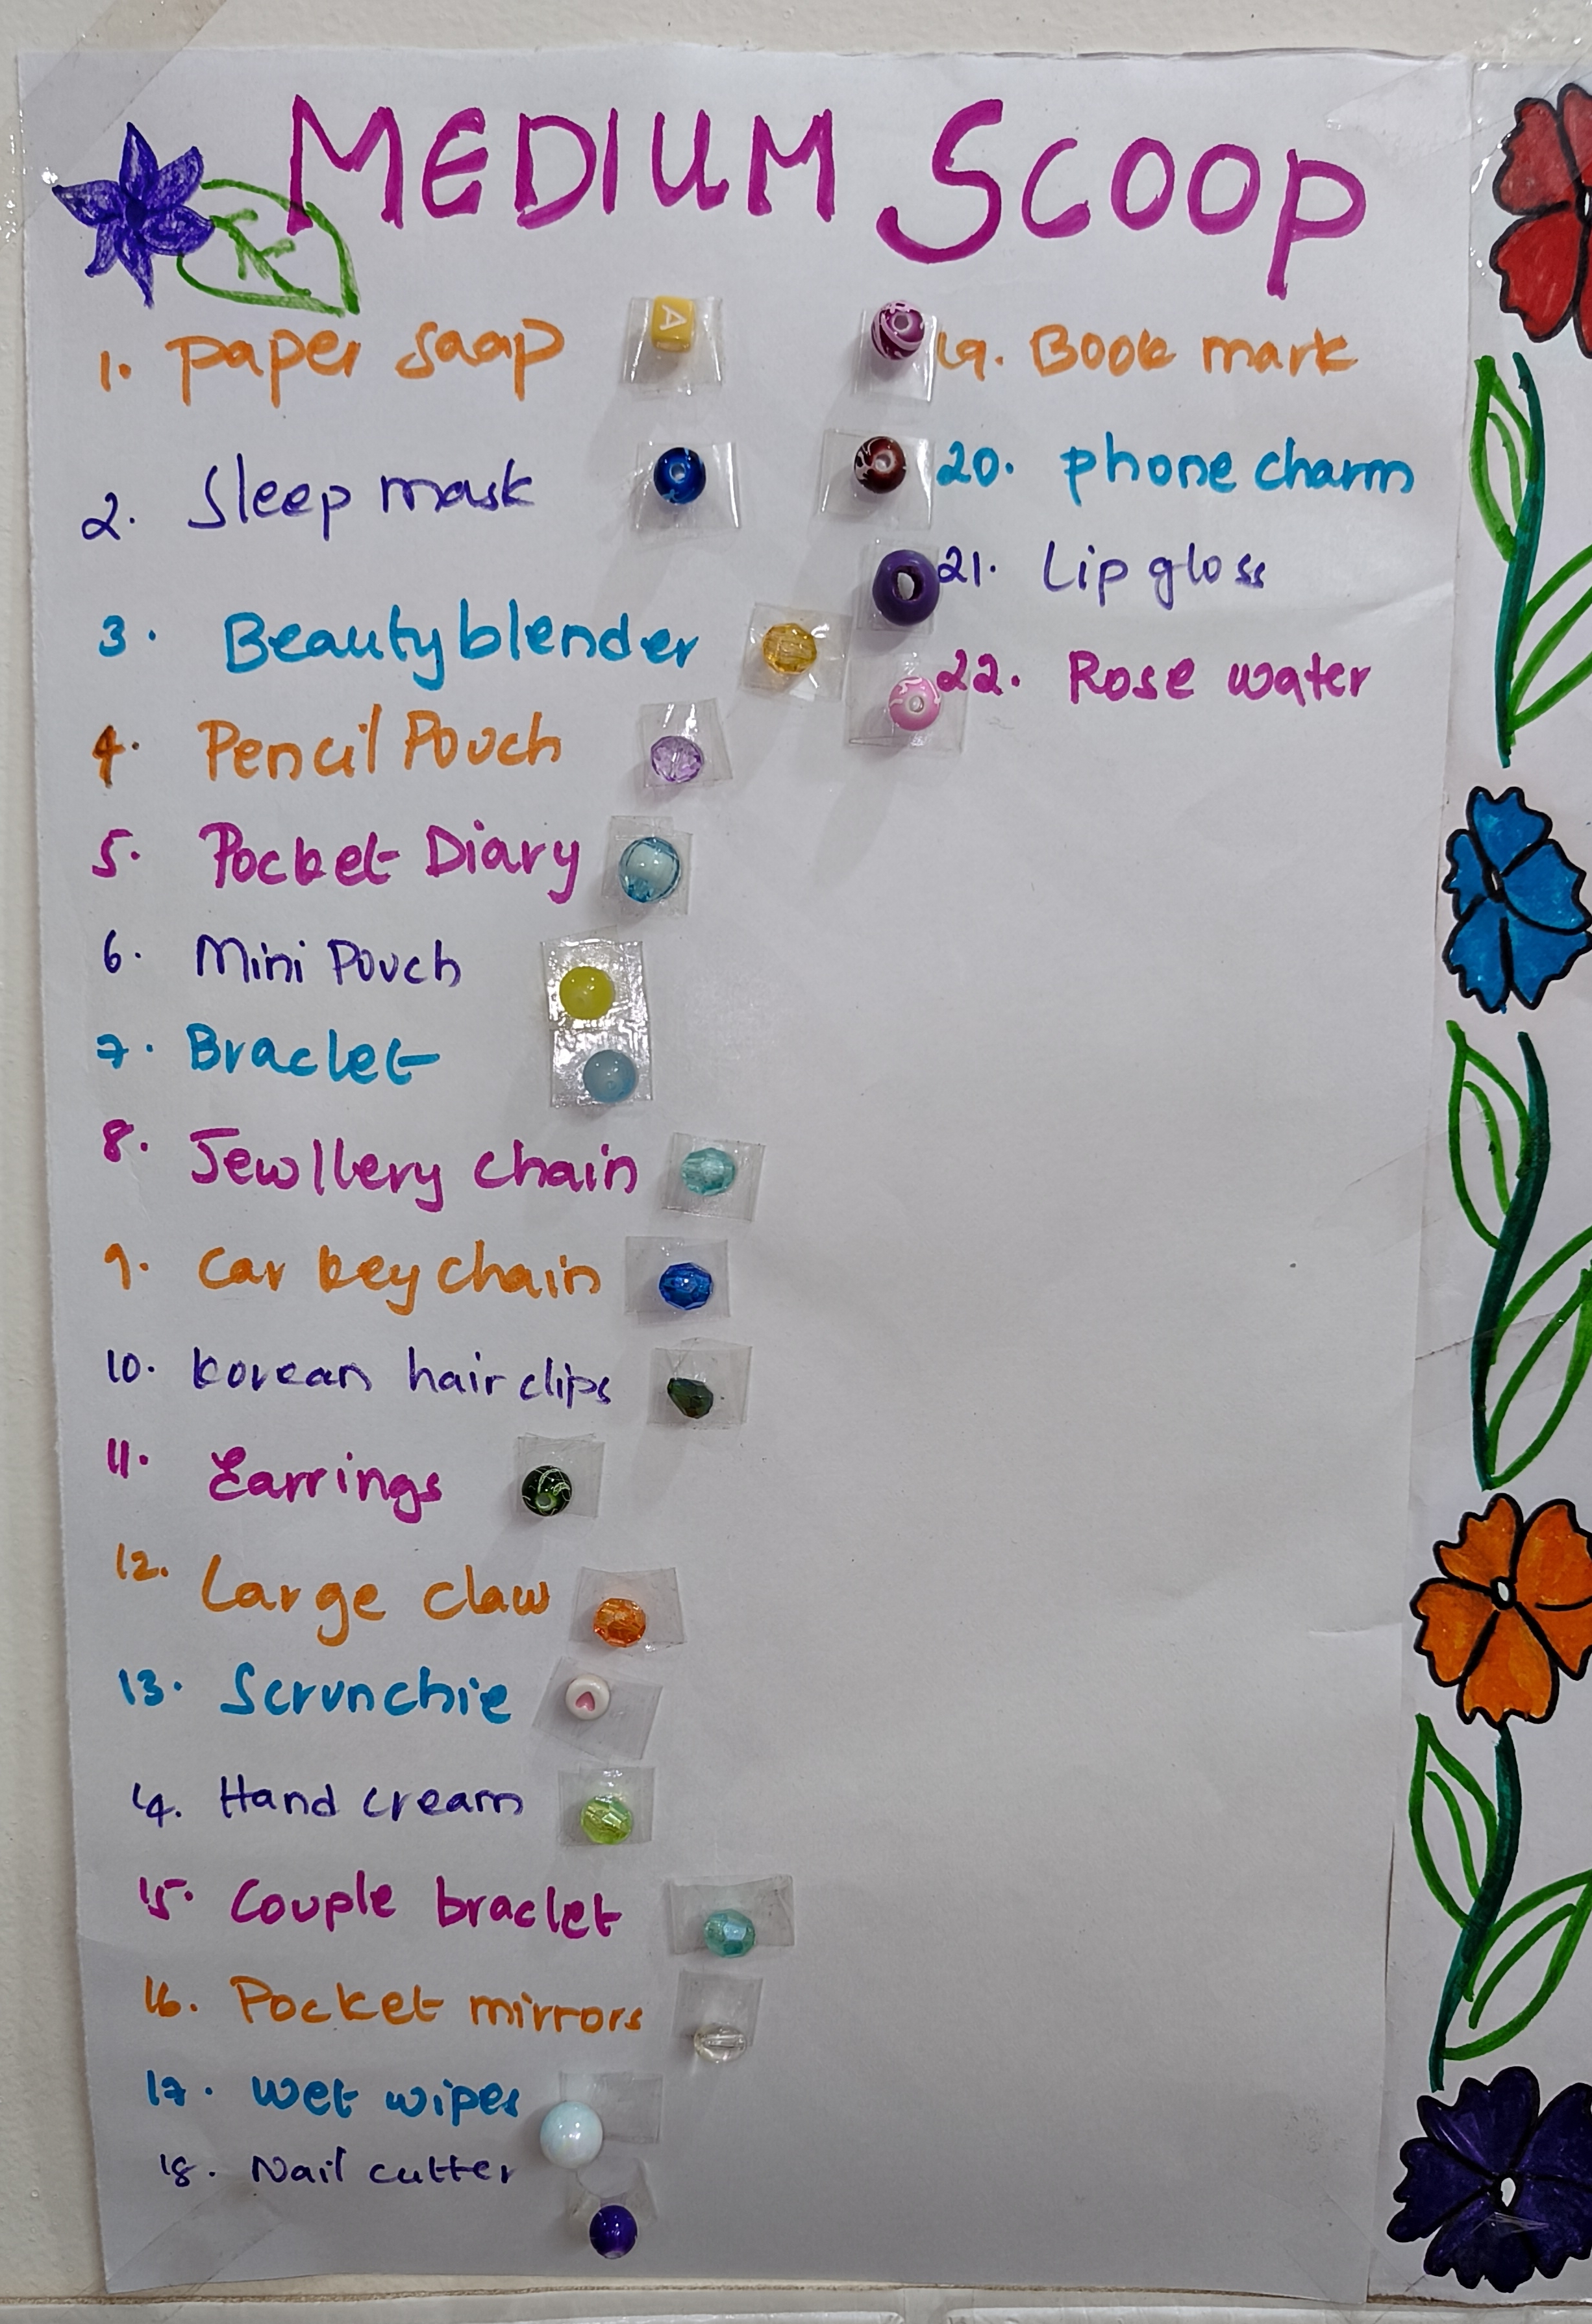 MEDIUM SCOOP
1. paper soap
A
2. Sleep mask
3. Beauty blender
4. Pencil Pouch
5. Pocket Diary
6. Mini Pouch
7. Braclet
8. Jewllery chain
9. Car key chain
10. Korean hair clips
11. Earrings
12. Large claw
13. Scrunchie
14. Hand cream
15. Couple braclet
16. Pocket mirrors
17. Wet wipes
18. Nail cutter
19. Book mark
20. phone charm
21. Lip gloss
22. Rose water